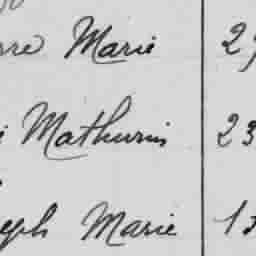 rre Marie 27
i Mathurin 23
eph Marie 13